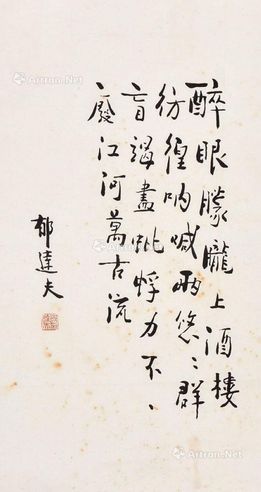 醉眼朦朧上酒樓
彷徨吶喊兩悠〻群
盲竭盡蚍蜉力不〻
廢江河萬古流
郁達夫
Artron.Net
Artron.Net
Artron.Net
Artron.Net